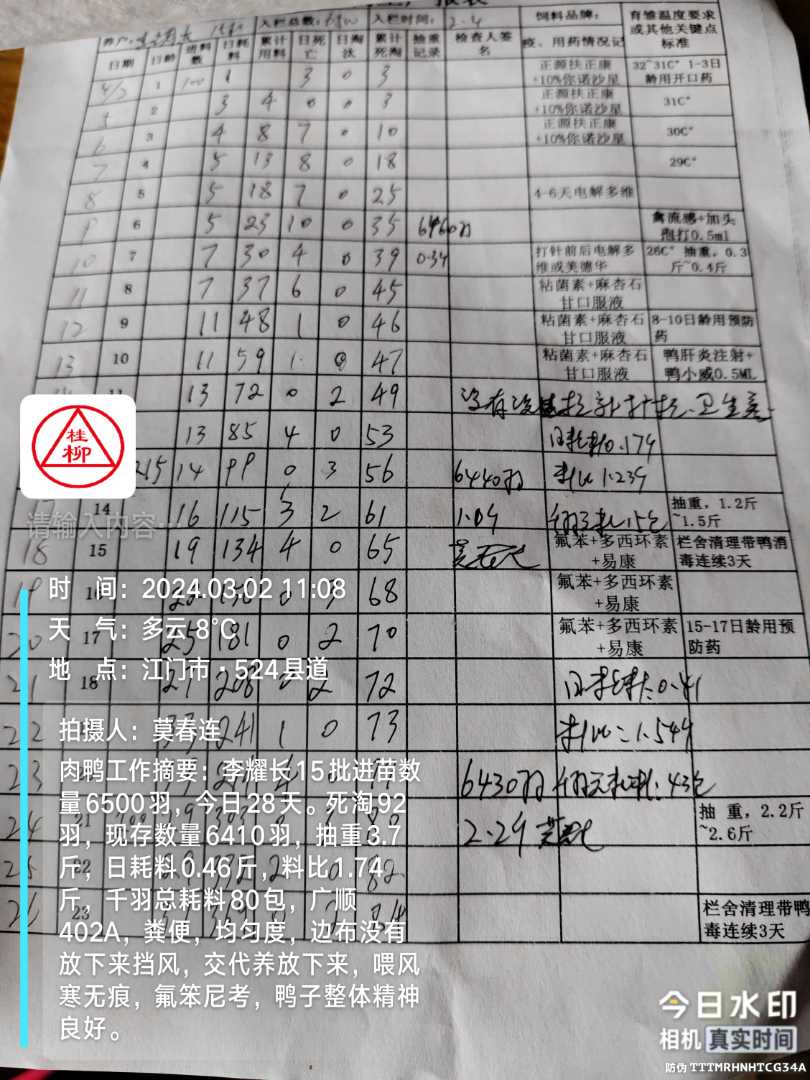 入栏总数: 入栏时间: 2.4 饲料品牌: 育雏温度要求或其他关键点标准
日期 日龄 进料数 日耗料 累计用料 日死亡 日淘汰 累计死淘 抽重记录 检查人签名 疫、用药情况记
1 100 1 3 0 3 正源扶正康+10%你诺沙星 32~31C° 1-3日龄用开口药
5 2 3 4 0 0 3 正源扶正康+10%你诺沙星 31C°
6 3 4 8 7 0 10 正源扶正康+10%你诺沙星 30C°
7 4 5 13 8 0 18 29C°
8 5 5 18 7 0 25 4-6天电解多维
9 6 5 23 10 0 35 6460羽 禽流感+加头孢打0.5ml
10 7 7 30 4 0 39 0.34 打针前后电解多维或美德华 26C° 抽重,0.3斤~0.4斤
11 8 7 37 6 0 45 粘菌素+麻杏石甘口服液
12 9 11 48 1 0 46 粘菌素+麻杏石甘口服液 8-10日龄用预防药
13 10 11 59 1 0 47 粘菌素+麻杏石甘口服液 鸭肝炎注射+鸭小威0.5ML
11 13 72 0 2 49 没有 卫生差
13 85 4 0 53 日耗料0.179
14 99 0 3 56 6440羽 料比1.239
14 16 115 3 2 61 1.09 抽重,1.2斤~1.5斤
18 15 19 134 4 0 65 氟苯+多西环素+易康 栏舍清理带鸭消毒连续3天
19 16 68 氟苯+多西环素+易康
20 17 25 181 0 2 70 氟苯+多西环素+易康 15-17日龄用预防药
21 18 27 208 2 72 日耗料:0.41
22 241 1 0 73 料比=1.544
23 6430羽
24 21 2.29 抽 重,2.2斤~2.6斤
25 22 82
26 23 84 栏舍清理带鸭毒连续3天
桂柳
请输入内容…
时 间: 2024.03.02 11:08
天 气: 多云 8℃
地 点: 江门市·524县道
拍摄人: 莫春连
肉鸭工作摘要: 李耀长15批进苗数
量6500羽,今日28天。死淘92
羽,现存数量6410羽,抽重3.7
斤,日耗料0.46斤,料比1.74
斤,千羽总耗料80包,广顺
402A,粪便,均匀度,边布没有
放下来挡风,交代养放下来,喂风
寒无痕,氟笨尼考,鸭子整体精神
良好。
今日水印
相机 真实时间
防伪 TTTMRHNHTCG34A